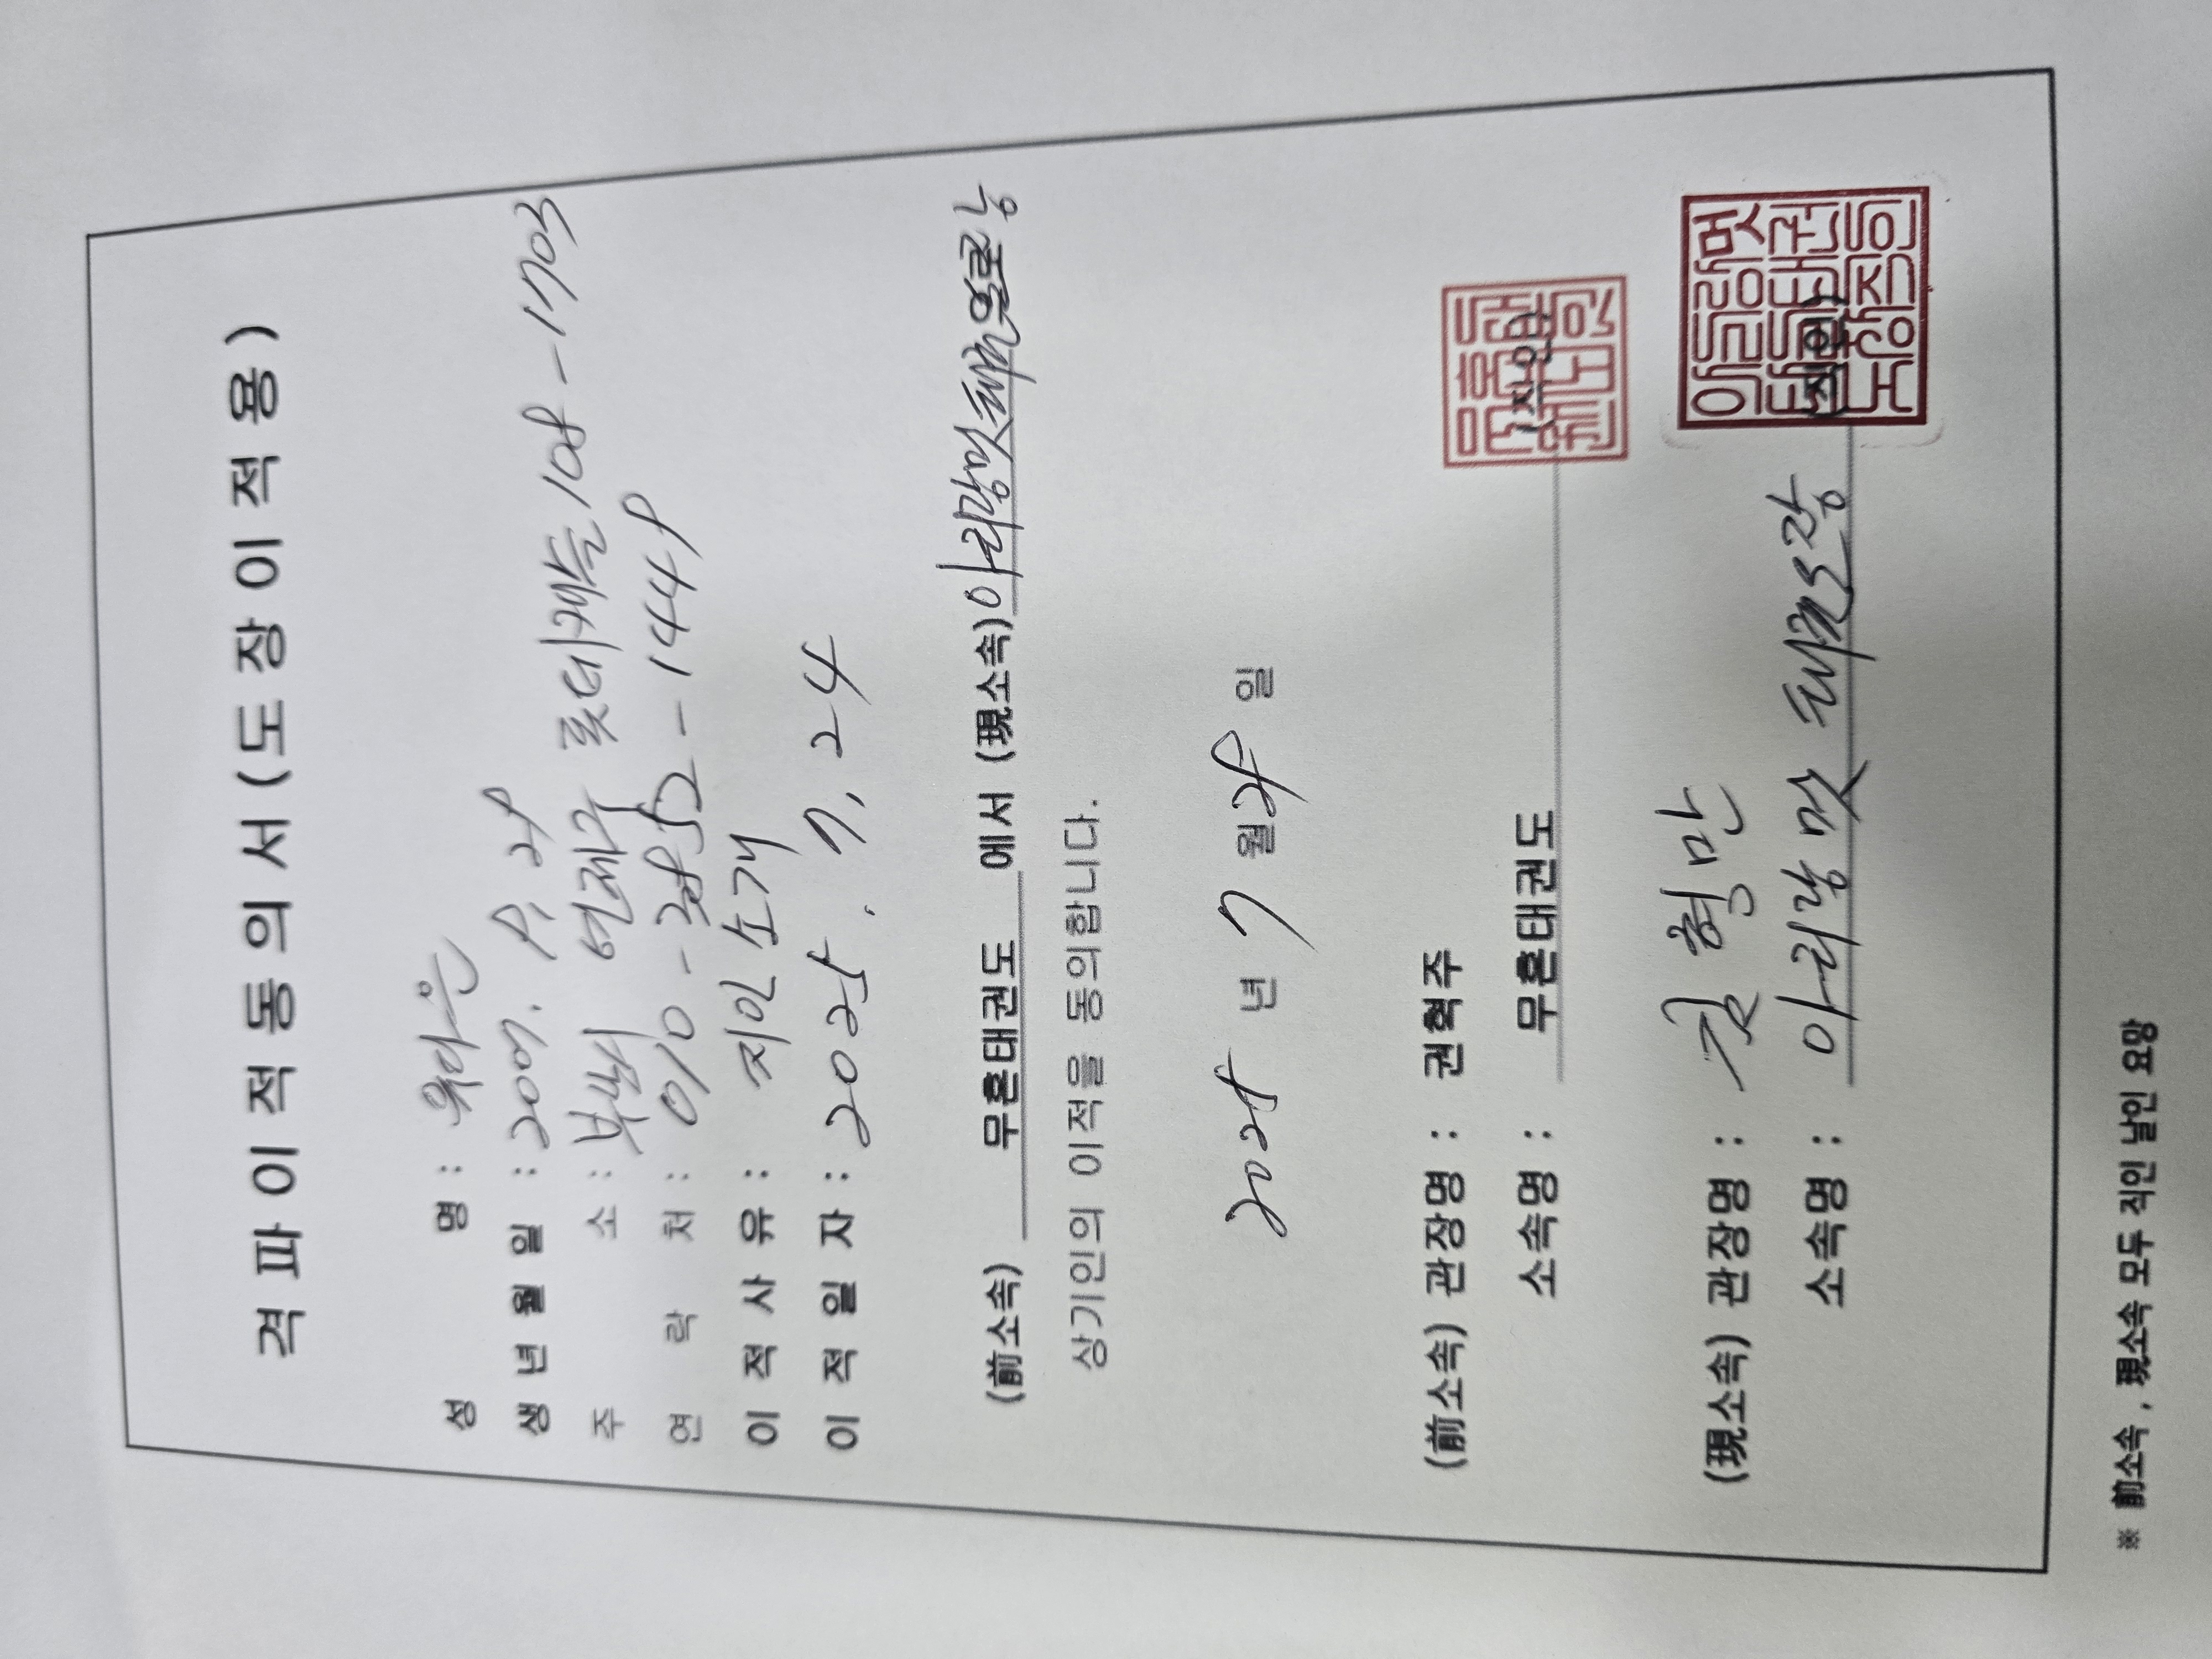 격 파 이 적 동 의 서 ( 도 장 이 적 용 )
성 명 : 위다은
생 년 월 일 : 2007. 8, 28
주 소 : 부산시 연제구 롯데캐슬 108 - 1703
연 락 처 : 010 - 2852 - 1448
이 적 사 유 : 지인 소개
이 적 일 자 : 2025. 7, 24
(前소속) 무혼태권도 에서 (現소속) 아리랑멋태권으로
상기인의 이적을 동의합니다.
2025 년 7 월 28 일
(前소속) 관장명 : 권혁주
소속명 : 무혼태권도 (직인)
(現소속) 관장명 : 김형만
소속명 : 아리랑멋 태권도장 (직인)
아리랑멋
태권
도장
※ 前소속 , 現소속 모두 직인 날인 요망